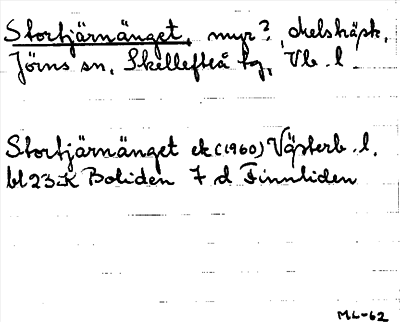 Stortjärnänget, myr?, skelsträsk,
Jörns sn, Skellefteå tg, Vb. l.
Stortjärnänget ek (1960) Västerb. l.
bl 23 K Boliden 7 d Finnliden
ML-62